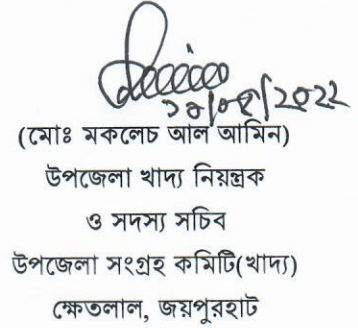 (মোঃ মকলেচ আল আমিন)
উপজেলা খাদ্য নিয়ন্ত্রক
ও সদস্য সচিব
উপজেলা সংগ্রহ কমিটি(খাদ্য)
ক্ষেতলাল, জয়পুরহাট